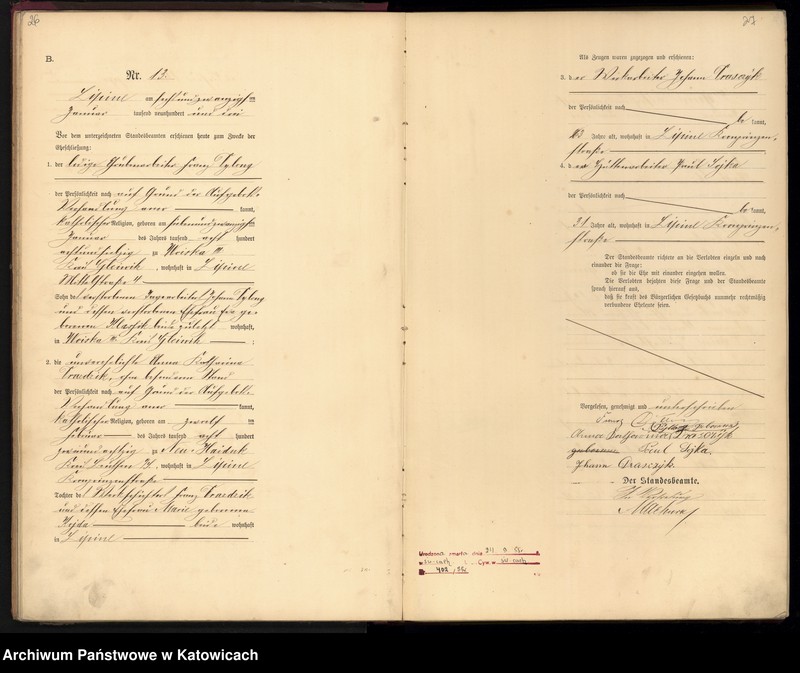 26
B.
Nr. 13.
Lipine am sechsundzwanzigsten
Januar tausend neunhundert und drei
Vor dem unterzeichneten Standesbeamten erschienen heute zum Zwecke der
Eheschließung:
1. der ledige Grubenarbeiter Franz
der Persönlichkeit nach auf Grund der Aufgebots-
Verhandlung aner kannt,
katholischer Religion, geboren am siebenundzwanzigsten
Januar des Jahres tausend acht hundert
achtundsiebzig zu
Kreis Gleiwitz, wohnhaft in Lipine
Mittelstraße 4
Sohn des verstorbenen Johann
und dessen verstorbenen Ehefrau Eva ge-
borenen beide zuletzt wohnhaft,
in Kreis Gleiwitz ;
2. die unverehelichte Anna Katharina
Drasdzik, ohne besonderen Stand
der Persönlichkeit nach auf Grund der Aufgebots-
Verhandlung aner kannt,
katholischer Religion, geboren am zwölften
Februar des Jahres tausend acht hundert
zweiundachtzig zu Neu Haiduk
Kreis Beuthen O/S, wohnhaft in Lipine
Kronprinzenstraße
Tochter des Franz Drasdzik
und dessen Ehefrau Marie geborenen
Hojda beide wohnhaft
in Lipine
27
Als Zeugen waren zugezogen und erschienen:
3. der Werkarbeiter Johann
der Persönlichkeit nach
be kannt,
43 Jahre alt, wohnhaft in Lipine Kronprinzen-
straße
4. der Hüttenarbeiter Paul Sojka
der Persönlichkeit nach
be kannt,
31 Jahre alt, wohnhaft in Lipine Kronprinzen-
straße
Der Standesbeamte richtete an die Verlobten einzeln und nach
einander die Frage:
ob sie die Ehe mit einander eingehen wollen.
Die Verlobten bejahten diese Frage und der Standesbeamte
sprach hierauf aus,
daß sie kraft des Bürgerlichen Gesetzbuchs nunmehr rechtmäßig
verbundene Eheleute seien.
Vorgelesen, genehmigt und unterschrieben
Franz
geborene
geborene Paul Sojka.
Johann Drasczyk.
Der Standesbeamte.
In Vertretung
Urodzona zmarła dnia
w Cyw. w
Nr.
Archiwum Państwowe w Katowicach